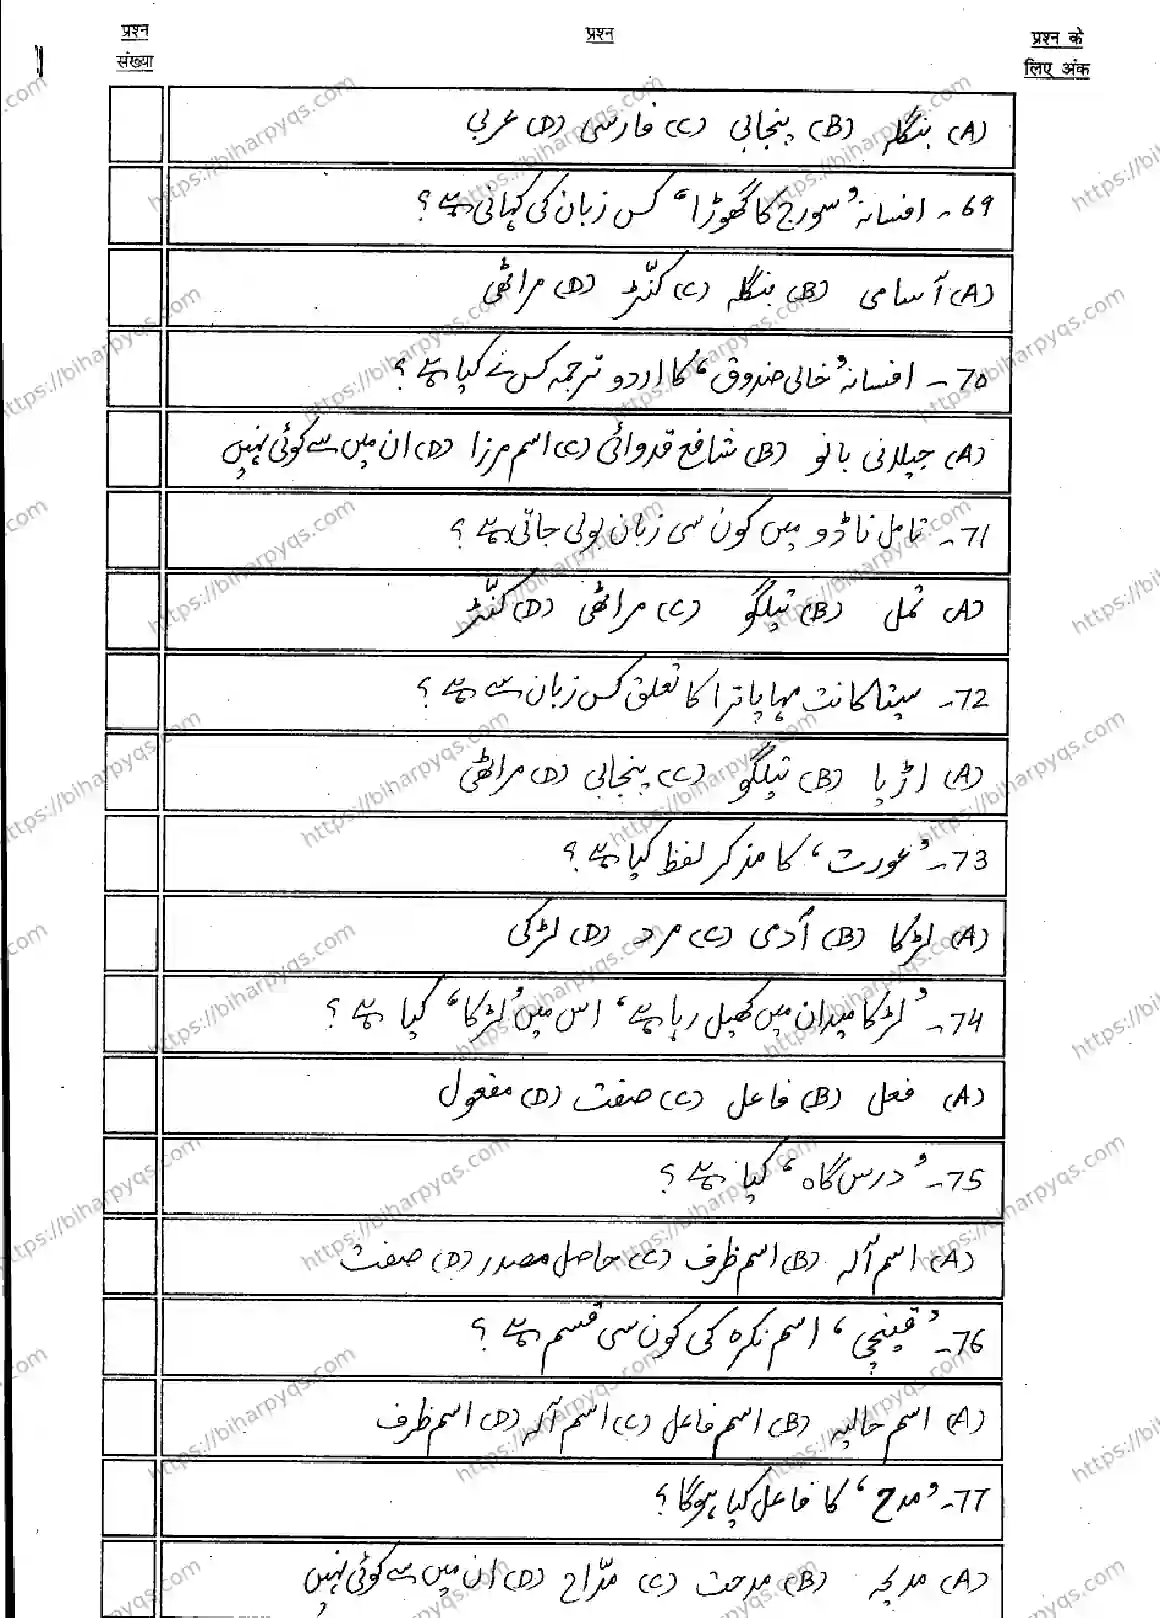 प्रश्न संख्या
प्रश्न
प्रश्न के लिए अंक
(A) بنگلہ (B) پنجابی (C) فارسی (D) عربی
69۔ افسانہ ’سورج کا گھوڑا‘ کس زبان کی کہانی ہے؟
(A) آسامی (B) بنگلہ (C) کنّڑ (D) مراٹھی
70۔ افسانہ ’خالی صندوق‘ کا اردو ترجمہ کس نے کیا ہے؟
(A) جیلانی بانو (B) شافع قدوائی (C) اسم مرزا (D) ان میں سے کوئی نہیں
71۔ تامل ناڈو میں کون سی زبان بولی جاتی ہے؟
(A) تمل (B) تیلگو (C) مراٹھی (D) کنّڑ
72۔ سیتا کانت مہا پاترا کا تعلق کس زبان سے ہے؟
(A) اڑیا (B) تیلگو (C) پنجابی (D) مراٹھی
73۔ ’عورت‘ کا مذکر لفظ کیا ہے؟
(A) لڑکا (B) آدمی (C) مرد (D) لڑکی
74۔ ’لڑکا میدان میں کھیل رہا ہے‘ اس میں ’لڑکا‘ کیا ہے؟
(A) فعل (B) فاعل (C) صفت (D) مفعول
75۔ ’درس گاہ‘ کیا ہے؟
(A) اسم آلہ (B) اسم ظرف (C) حاصل مصدر (D) صفت
76۔ ’قینچی‘ اسم نکرہ کی کون سی قسم ہے؟
(A) اسم حالیہ (B) اسم فاعل (C) اسم آلہ (D) اسم ظرف
77۔ ’مدح‘ کا فاعل کیا ہوگا؟
(A) مدیحہ (B) مدحت (C) مدّاح (D) ان میں سے کوئی نہیں
https://biharpyqs.com